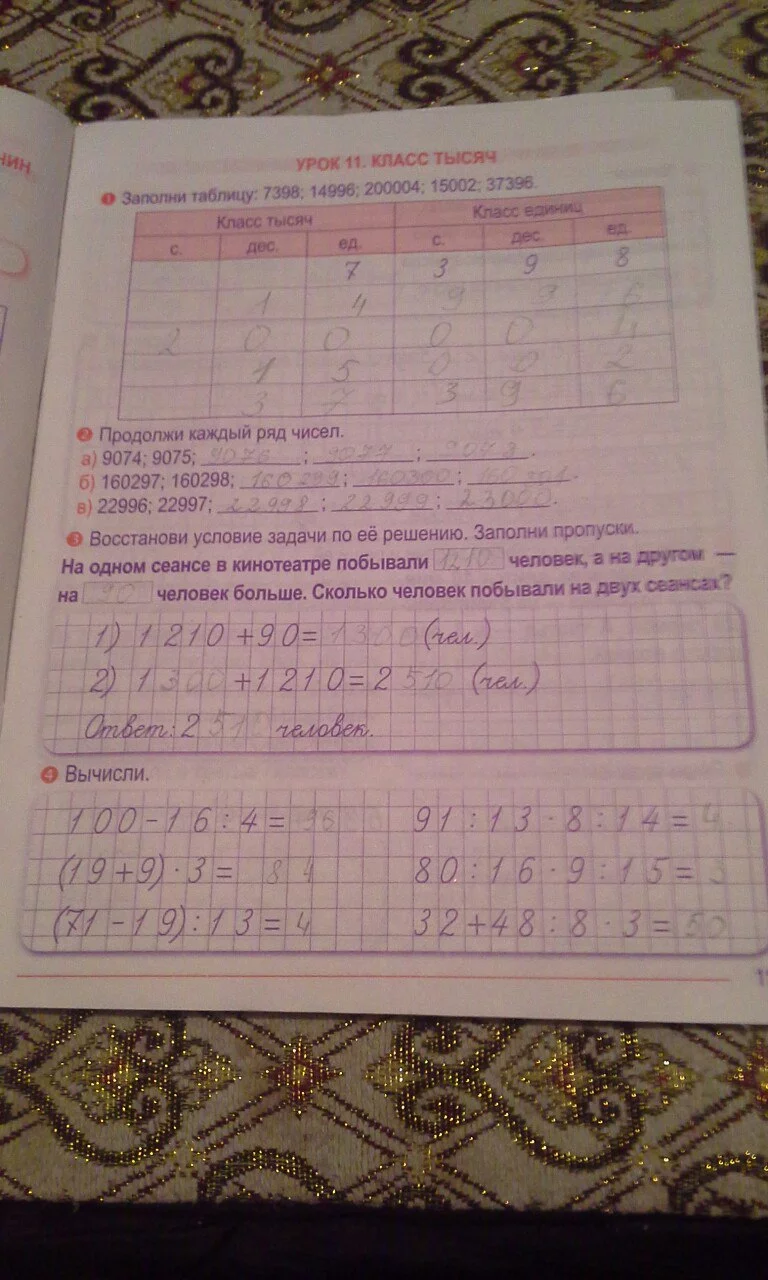 НИН
УРОК 11. КЛАСС ТЫСЯЧ
1 Заполни таблицу: 7398; 14996; 200004; 15002; 37396.
Класс тысяч Класс единиц
с. дес. ед. с. дес. ед.
7 3 9 8
1 4 9 9 6
2 0 0 0 0 4
1 5 0 0 2
3 7 3 9 6
2 Продолжи каждый ряд чисел.
а) 9074; 9075; 9076; 9077; 9078.
б) 160297; 160298; 160299; 160300; 160301.
в) 22996; 22997; 22998; 22999; 23000.
3 Восстанови условие задачи по её решению. Заполни пропуски.
На одном сеансе в кинотеатре побывали 1210 человек, а на другом —
на 90 человек больше. Сколько человек побывали на двух сеансах?
1) 1210+90=1300 (чел.)
2) 1300+1210=2510 (чел.)
Ответ: 2510 человек.
4 Вычисли.
100-16:4=96 91:13·8:14=4
(19+9)·3=84 80:16·9:15=3
(71-19):13=4 32+48:8·3=50